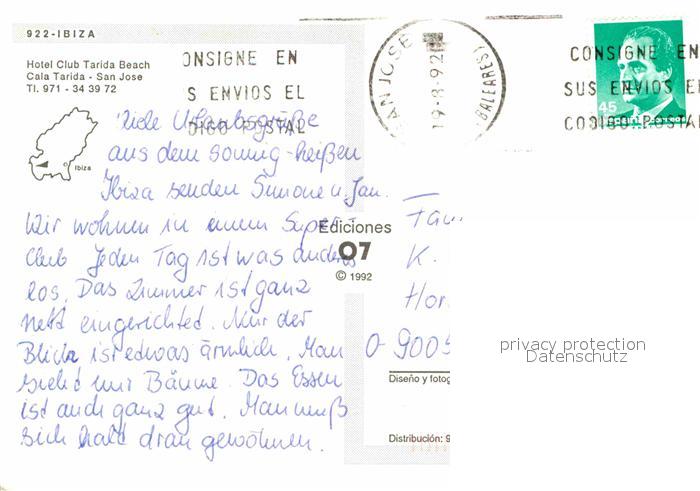 922-IBIZA
Hotel Club Tarida Beach
Cala Tarida - San Jose
Tl. 971 - 34 39 72
Ibiza
ONSIGNE EN
S ENVIOS EL
DIGO POSTAL
SAN JOSE
19-8-92
(BALEARES)
CONSIGNE EN
SUS ENVIOS E
CODIGO POSTAL
45
Viele Urlaubsgrüße
aus dem sonnig-heißen
Ibiza senden Simone u. Jan.
Wir wohnen in einem Super-
Club Jeden Tag ist was anderes
los. Das Zimmer ist ganz
nett eingerichtet. Nur der
Blick ist etwas ärmlich. Man
sieht nur Bäume. Das Essen
ist auch ganz gut. Man muß
sich halt dran gewöhnen.
Ediciones
07
© 1992
K.
Hor
O-9005
Diseño y fotog
Distribución: 9
privacy protection
Datenschutz